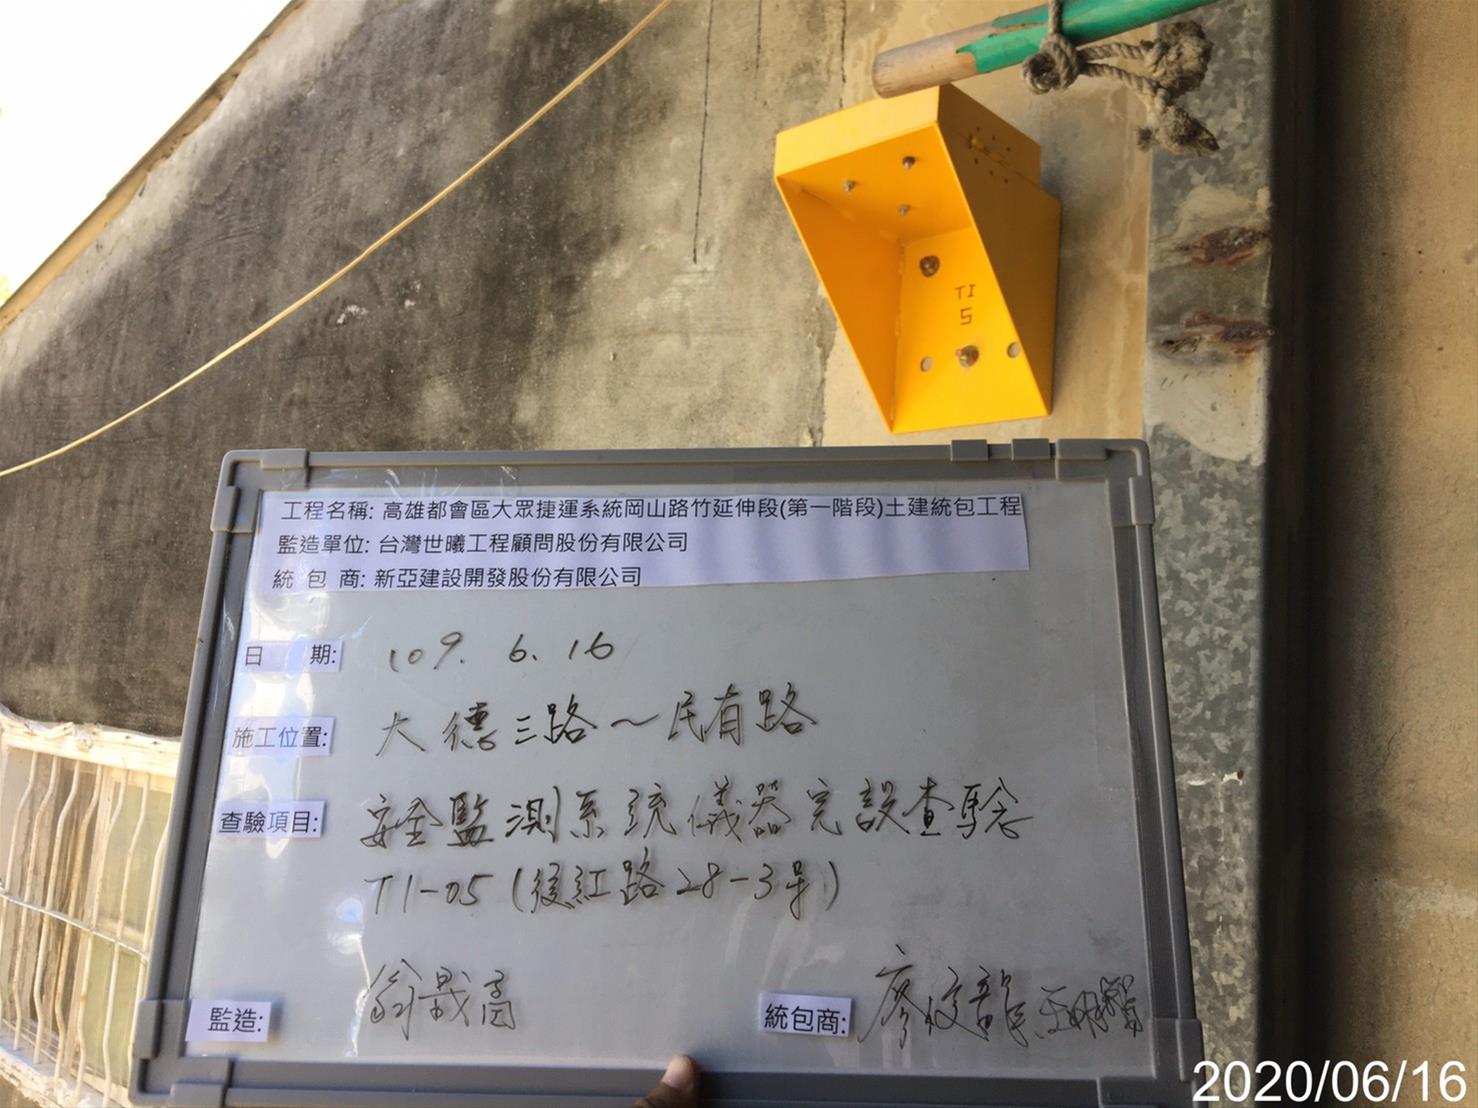 TI
5
工程名稱: 高雄都會區大眾捷運系統岡山路竹延伸段(第一階段)土建統包工程
監造單位: 台灣世曦工程顧問股份有限公司
統 包 商: 新亞建設開發股份有限公司
日 期: 109. 6. 16
施工位置: 大德三路~民有路
查驗項目: 安全監測系統儀器完設查驗
TI-05 (後紅路28-3号)
監造:
統包商: 廖文龍
2020/06/16